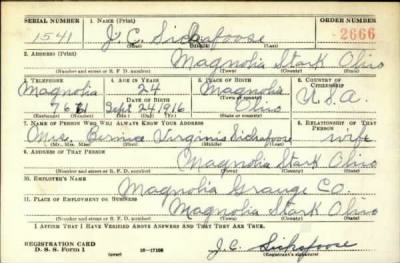 SERIAL NUMBER 1. NAME (Print) ORDER NUMBER
1541 J. C. Sickafoose 2666
(First) (Middle) (Last)
2. ADDRESS (Print)
Magnolia Stark Ohio
(Number and street or R. F. D. number) (Town) (County) (State)
3. TELEPHONE 4. AGE IN YEARS 5. PLACE OF BIRTH 6. COUNTRY OF CITIZENSHIP
Magnolia 24 Magnolia
DATE OF BIRTH (Town or county)
Sept 24 1916 Ohio U.S.A.
(Exchange) (Number) (Mo.) (Day) (Yr.) (State or country)
7. NAME OF PERSON WHO WILL ALWAYS KNOW YOUR ADDRESS 8. RELATIONSHIP OF THAT PERSON
Mrs. Bernice Virginia Sickafoose wife
(Mr., Mrs., Miss) (First) (Middle) (Last)
9. ADDRESS OF THAT PERSON
Magnolia Stark Ohio
(Number and street or R. F. D. number) (Town) (County) (State)
10. EMPLOYER'S NAME
Magnolia Grange Co.
11. PLACE OF EMPLOYMENT OR BUSINESS
Magnolia Stark Ohio
(Number and street or R. F. D. number) (Town) (County) (State)
I AFFIRM THAT I HAVE VERIFIED ABOVE ANSWERS AND THAT THEY ARE TRUE.
REGISTRATION CARD
D. S. S. Form 1 J.C. Sickafoose
(Registrant's signature)